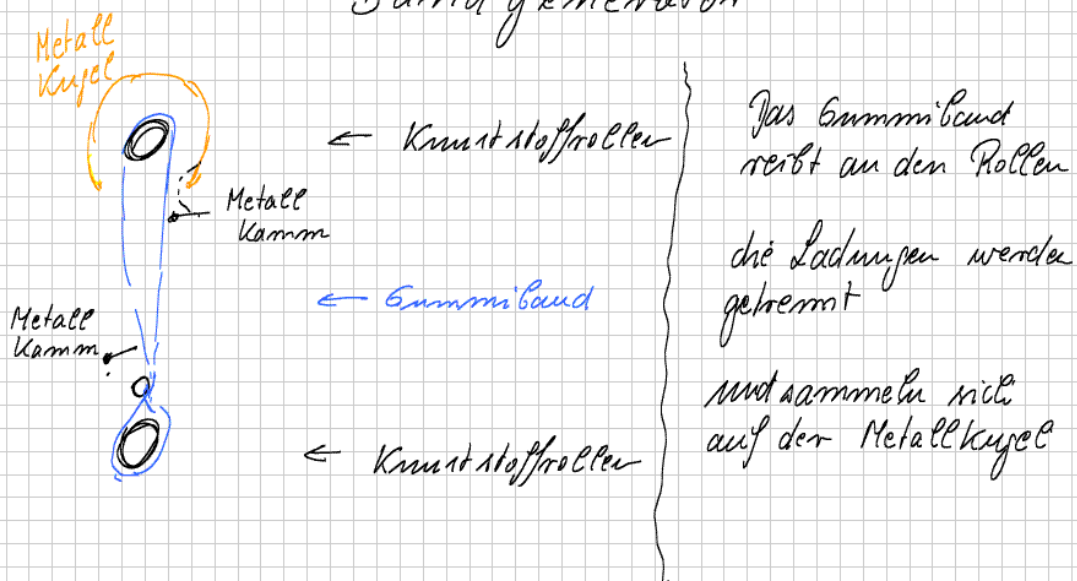 Bandgenerator
Metall
Kugel
Kunststoffrollen
Metall
Kamm
Gummiband
Metall
Kamm
Kunststoffrollen
Das Gummiband
reibt an den Rollen
die Ladungen werden
getrennt
und sammeln sich
auf der Metallkugel